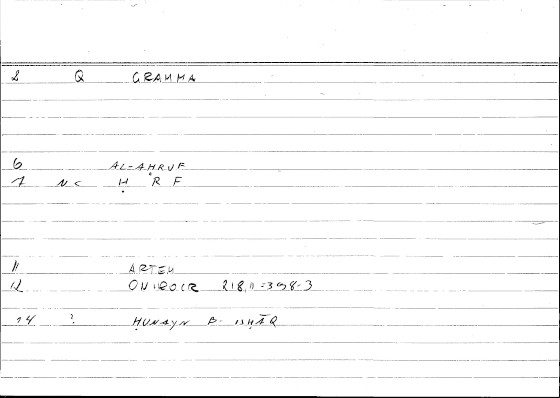 8 Q GRAMMA
6 AL-AḤRUF
7 NC Ḥ R F
11 ARTEM
12 ONIROCR 218,11=398-3
14 ? ḤUNAYN B. ISḤĀQ